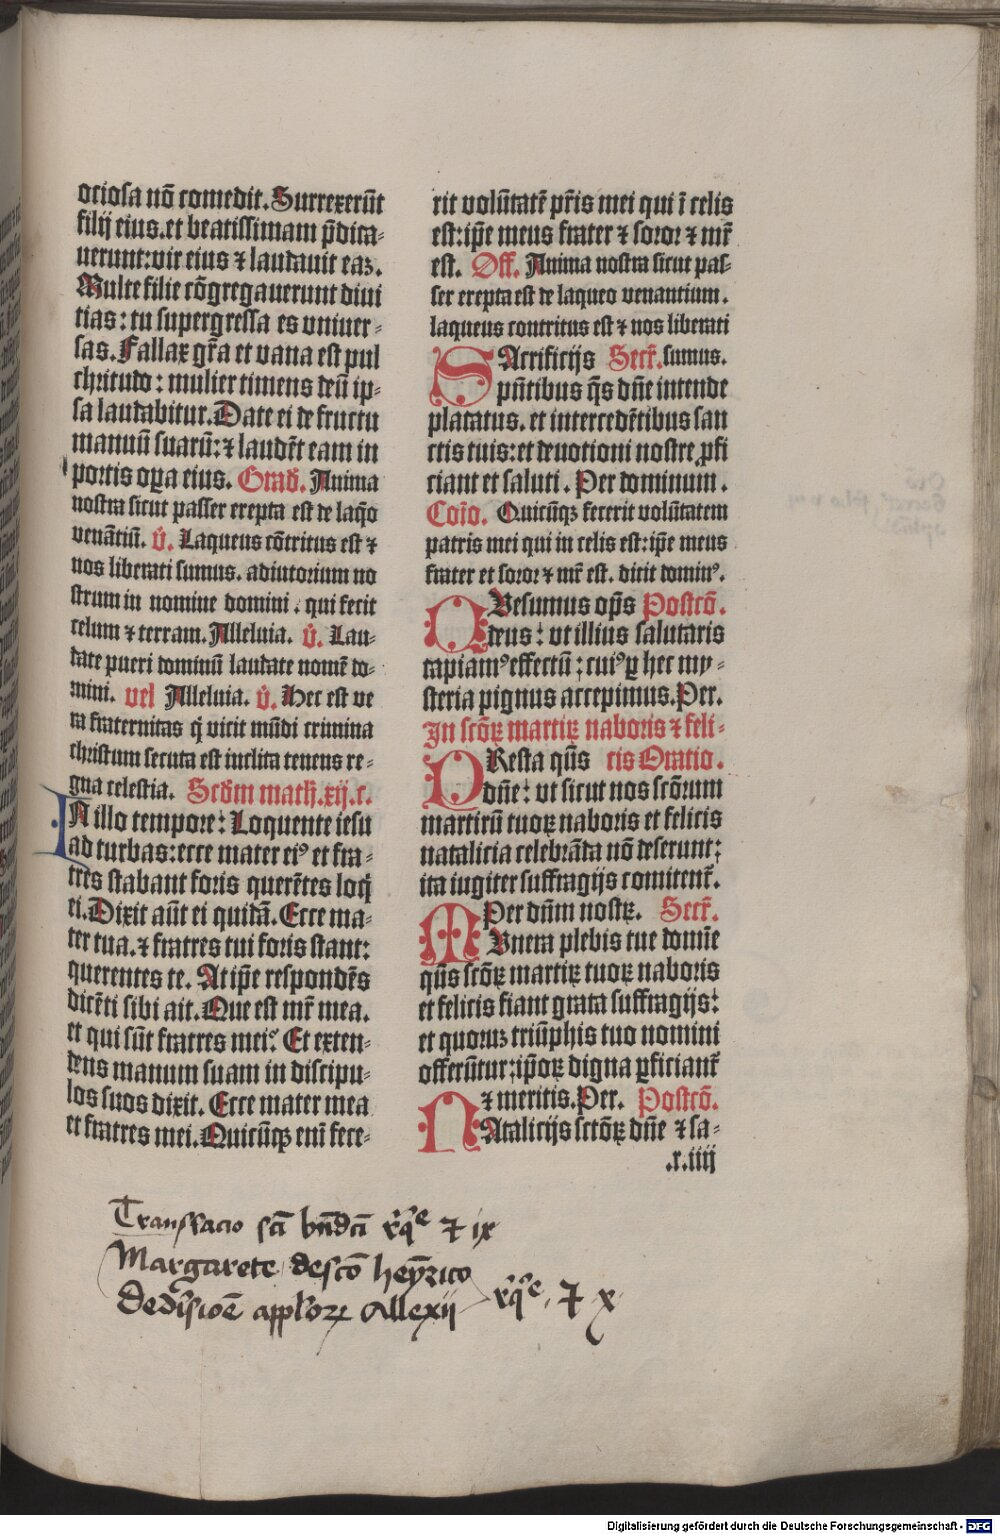 ociosa nō comedit. Surrexerūt
filij eius. et beatissimam p̄dica-
uerunt: vir eius ⁊ laudauit eaʒ.
Multe filie cōgregauerunt diui
tias: tu supergressa es vniuer-
sas. Fallax gr̄a et vana est pul
chritudo: mulier timens deū ip-
sa laudabitur. Date ei de fructu
manuū suarū: ⁊ laudēt eam in
portis oꝑa eius. Grad̄. Anima
nostra sicut passer erepta est de laq̄o
venātiū. v̄. Laqueus cōtritus est ⁊
nos liberati sumus. adiutorium no
strum in nomine domini. qui fecit
celum ⁊ terram. Alleluia. v̄. Lau-
date pueri dominū laudate nomē do-
mini. vel Alleluia. v̄. Hec est ve
ra fraternitas q̄ vicit mūdi crimina
christum secuta est inclita tenens re-
gna celestia. Scd̄m math̄. xij. c.
IN illo tempore: Loquente iesu
ad turbas: ecce mater eiꝰ et fra-
tres stabant foris querētes loq̄
ei. Dixit aūt ei quidā. Ecce ma-
ter tua. ⁊ fratres tui foris stant:
querentes te. At ip̄e respondēs
dicēti sibi ait. Que est mr̄ mea.
et qui sūt fratres mei? Et exten-
dens manum suam in discipu-
los suos dixit. Ecce mater mea
et fratres mei. Quicūqꝫ eni fece-
rit volūtatē pr̄is mei qui ī celis
est: ip̄e meus frater ⁊ soror ⁊ mr̄
est. Off. Anima nostra sicut pas-
ser erepta est de laqueo venantium.
laqueus contritus est ⁊ nos liberati
SAcrificijs Secr̄. sumus.
p̄ntibus q̄s dn̄e intende
placatus. et intercedētibus san
ctis tuis: et deuotioni nostre ꝓfi
ciant et saluti. Per dominum.
Cōio. Quicūqꝫ fecerit volūtatem
patris mei qui in celis est: ip̄e meus
frater et soror ⁊ mr̄ est. dicit dominꝰ.
QVesumus op̄s Postcō.
deus: vt illius salutaris
capiamꝰ effectū: cuiꝰ ꝑ hec my-
steria pignus accepimus. Per.
In scōꝝ martiꝝ naboris ⁊ feli-
PResta q̄s cis Oratio.
dn̄e: vt sicut nos scōrum
martirū tuoꝝ naboris et felicis
natalicia celebrāda nō deserunt:
ita iugiter suffragijs comitent̄.
Per dn̄m nostꝝ. Secr̄.
MVnera plebis tue domīe
q̄s scōꝝ martiꝝ tuoꝝ naboris
et felicis fiant grata suffragijs:
et quoruꝫ triūphis tuo nomini
offerūtur: ip̄oꝝ digna ꝑficiant̄
⁊ meritis. Per. Postcō.
NAtalicijs sctōꝝ dn̄e ⁊ sa-
.x.iiij
Transsacio sc̄i bn̄dc̄i r̄q̄e ⁊ ix
Margarete descō heynrico
Dediūsioē appl'oꝝ Allexij r̄q̄e. ⁊ x
Digitalisierung gefördert durch die Deutsche Forschungsgemeinschaft - DFG